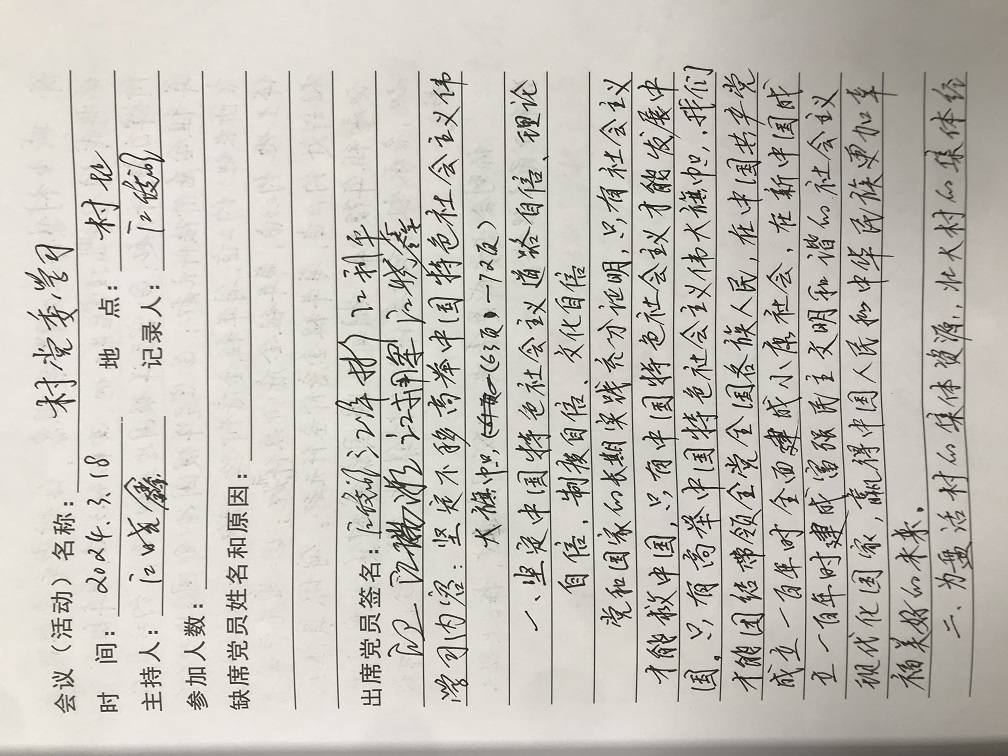 会议（活动）名称：村党委学习
时 间：2024.3.18 地 点：村部
主持人：江晓鑫 记录人：
参加人数：
缺席党员姓名和原因：
出席党员签名：
学习内容：坚定不移高举中国特色社会主义伟
大旗帜，（63页－72页）
一、坚定中国特色社会主义道路自信、理论
自信、制度自信、文化自信
党和国家的长期实践充分证明，只有社会主义
才能救中国，只有中国特色社会主义才能发展中
国。只有高举中国特色社会主义伟大旗帜，我们
才能团结带领全党全国各族人民，在中国共产党
成立一百年时全面建成小康社会，在新中国成
立一百年时建成富强民主文明和谐的社会主义
现代化国家，赢得中国人民和中华民族更加幸
福美好的未来。
二、为盘活村的集体资源，壮大村的集体经